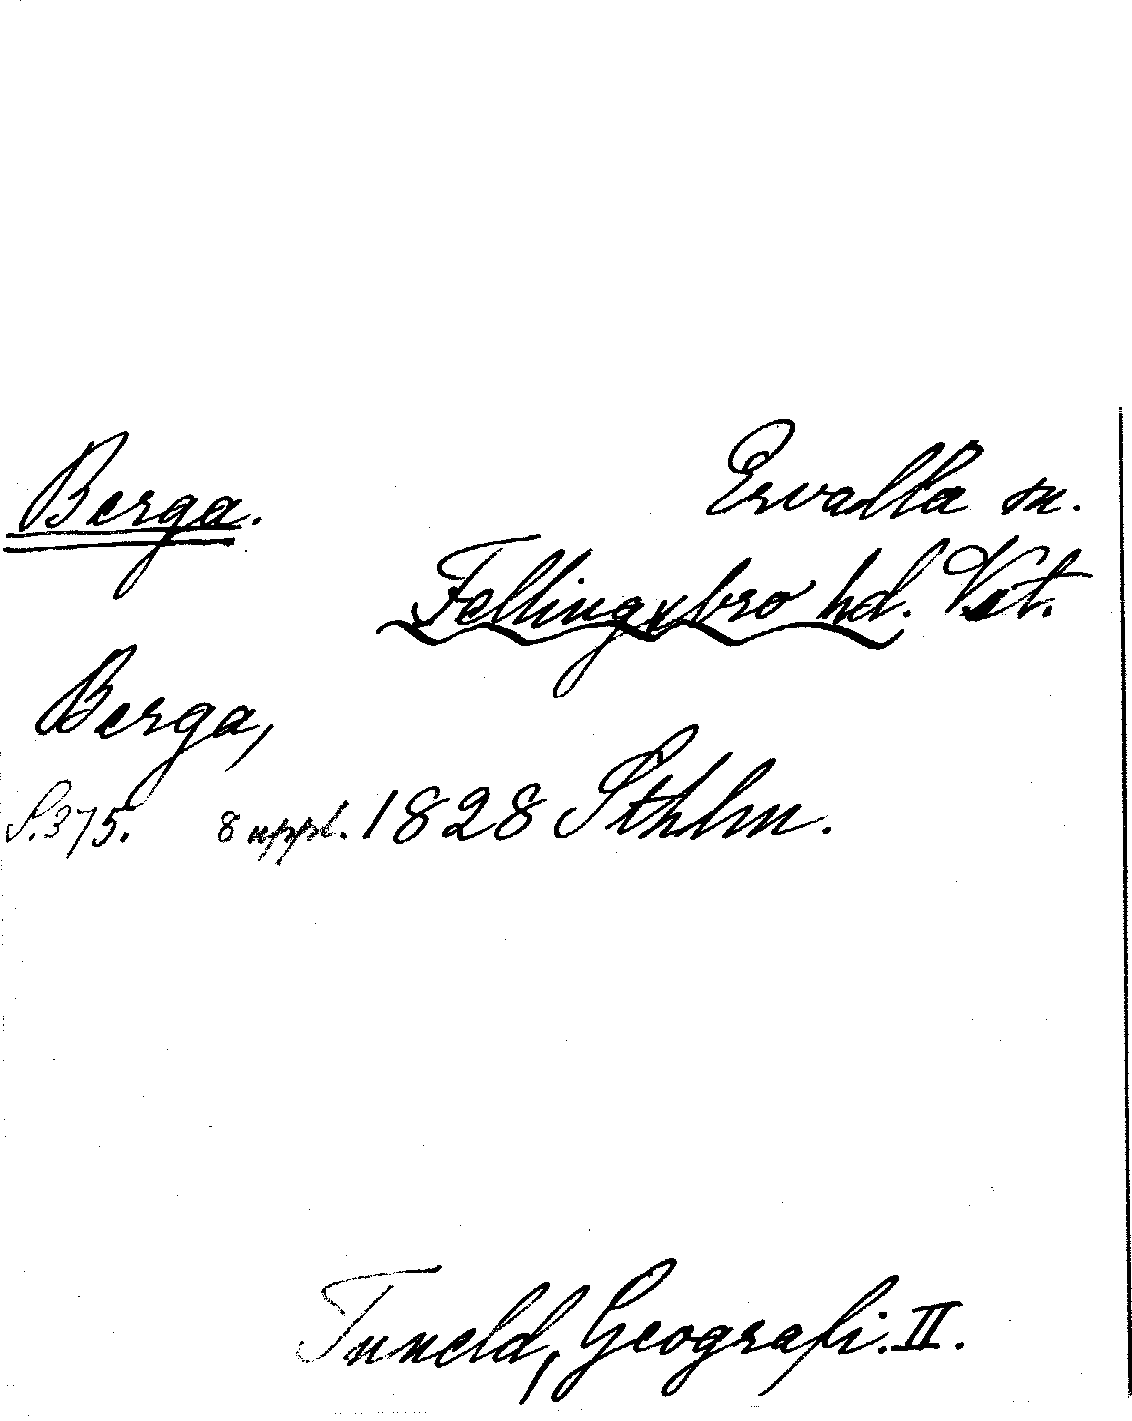 Berga.
Ervalla sn.
Fellingsbro hd. Vst.
Berga,
S. 375. 8 uppl. 1828 Sthlm.
Tuneld, Geografi. II.